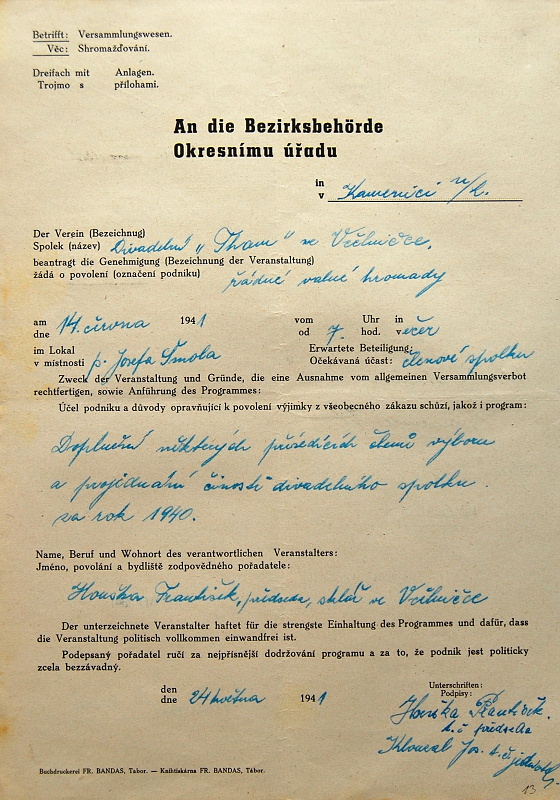 Betrifft: Versammlungswesen.
Věc: Shromažďování.
Dreifach mit Anlagen.
Trojmo s přílohami.
An die Bezirksbehörde
Okresnímu úřadu
in
v Kamenici n/L.
Der Verein (Bezeichnug)
Spolek (název) Divadelní „Tham" ve Včelničce,
beantragt die Genehmigung (Bezeichnung der Veranstaltung)
žádá o povolení (označení podniku) řádné valné hromady
am 1941 vom Uhr in
dne 14. června od 7. hod. večer
im Lokal Erwartete Beteiligung:
v místnosti p. Josefa Šmola Očekávaná účast: členové spolku
Zweck der Veranstaltung und Gründe, die eine Ausnahme vom allgemeinen Versammlungsverbot
rechtfertigen, sowie Anführung des Programmes:
Účel podniku a důvody opravňující k povolení výjimky z všeobecného zákazu schůzí, jakož i program:
Doplnění některých přísedících členů výboru
a projednání činosti divadelního spolku
za rok 1940.
Name, Beruf und Wohnort des verantwortlichen Veranstalters:
Jméno, povolání a bydliště zodpovědného pořadatele:
Houška František, předseda, sklář ve Včelničce
Der unterzeichnete Veranstalter haftet für die strengste Einhaltung des Programmes und dafür, dass
die Veranstaltung politisch vollkommen einwandfrei ist.
Podepsaný pořadatel ručí za nejpřísnější dodržování programu a za to, že podnik jest politicky
zcela bezzávadný.
den
dne 24 května 1941
Unterschriften:
Podpisy:
Houška František.
t. č předseda
Jos. t. č. jednatel
13
Buchdruckerei FR. BANDAS, Tabor. — Knihtiskárna FR. BANDAS, Tábor.